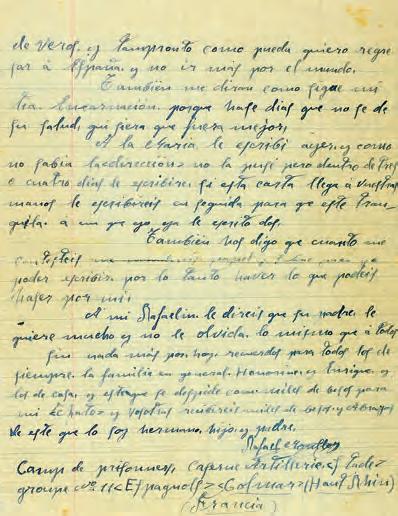 de veros. y tampronto como pueda quiero regre
sar á España. y no ir más por el mundo.
También me diran como sigue mi
tia. Encarnación. porque hase dias que no se de
su salud, qui siera que fuera mejor,
A la Maria, le escribi ayer, y como
no sabia la direccion no la puse pero dentro de tres
o cuatro dias le escribire. si esta carta llega á vuestras
manos le escribireis en seguida para que este tran
quila. á un que yo ya le escrito dos.
También hos digo que cuanto me
contesteis
poder escribir. por lo tanto haver lo que podeis
haser por mi.
A mi Rafaelin le direis que su padre. le
quiere mucho y no le olvida. lo mismo que á todos
sin nada más por hoy. recuerdos para todos los de
siempre. la familia en general. Honorina y Enrique. y
los de casa, y este que se despide con miles de besos para
mi Chato y vosotros recibireis miles de besos y abrazos
de este que lo soy hermano, hijo y padre.
Rafael
Camp de prisonniers, Caserne Artillerie,
groupe nº 11 Espagnols Colmar (Haut Rhin)
(Francia)